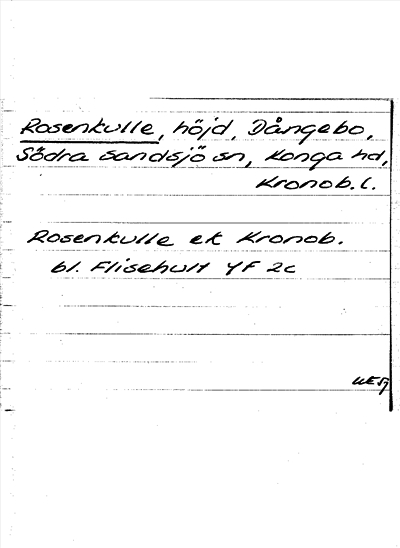 Rosenkulle, höjd, Dångebo,
Södra Sandsjö sn, Konga hd,
Kronob. l.
Rosenkulle ek Kronob.
bl. Flisehult YF 2c